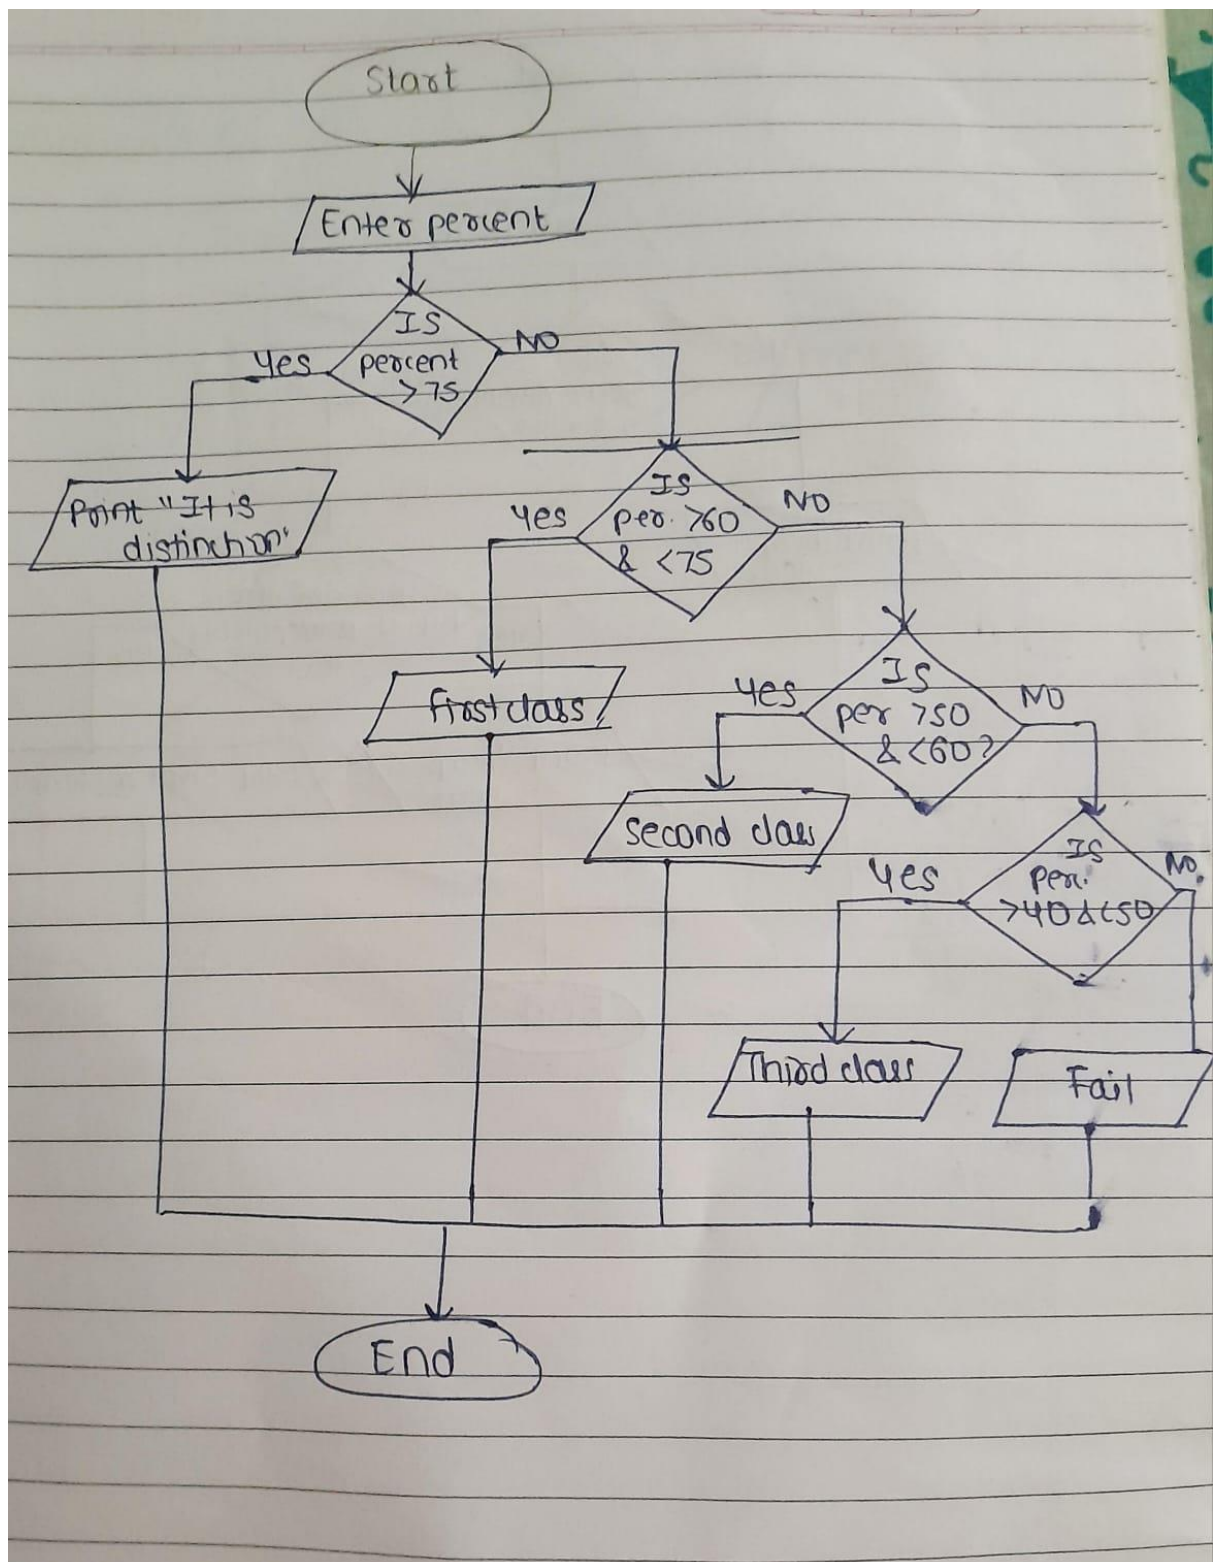 Start
Enter percent
IS
percent
>75
Yes
NO
Print "It is
distinction"
IS
per. >60
& <75
Yes
NO
first class
IS
per >50
& <60?
Yes
NO
second class
IS
per.
>40 & <50
Yes
NO.
Third class
Fail
End